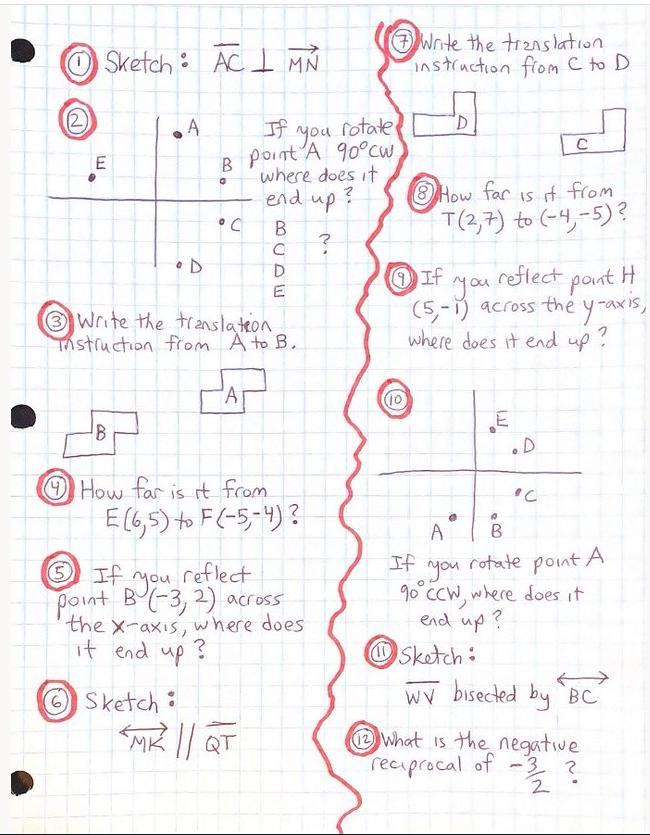 ① Sketch: AC ⊥ MN
②
A
E
B
C
D
If you rotate
point A 90°CW
where does it
end up?
B
C
D
E
?
③ Write the translation
instruction from A to B.
A
B
④ How far is it from
E(6,5) to F(-5,-4)?
⑤ If you reflect
point B (-3, 2) across
the x-axis, where does
it end up?
⑥ Sketch:
MK // QT
⑦ Write the translation
instruction from C to D
D
C
⑧ How far is it from
T(2,7) to (-4,-5)?
⑨ If you reflect point H
(5,-1) across the y-axis,
where does it end up?
⑩
E
D
C
A
B
If you rotate point A
90°CCW, where does it
end up?
⑪ Sketch:
WV bisected by BC
⑫ What is the negative
reciprocal of -3/2 ?